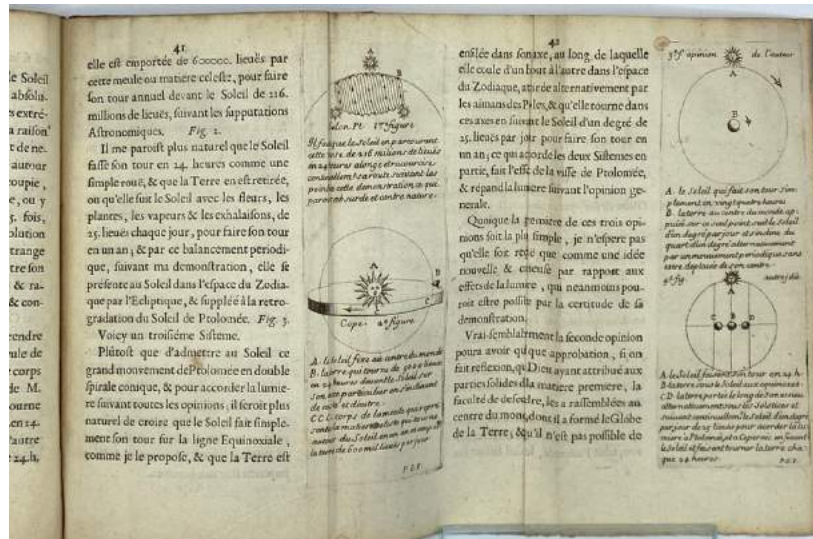 le Soleil
absolu-
s extré-
a raison'
t de ne.
autour
oupie,
e, ou y
5. fois,
olution
trange
tre son
& ra-
& con-
endre
ule de
corps
de M.
ourne
en 24.
'autre
24.h.
41
elle eſt emportée de 600000. lieuës par
cette meule ou matiere celeſte, pour faire
ſon tour annuel devant le Soleil de 216.
millions de lieuës, ſuivant les ſupputations
Aſtronomiques. Fig. 2.
Il me paroiſt plus naturel que le Soleil
faſſe ſon tour en 24. heures comme une
ſimple rouë, & que la Terre en eſt retirée,
ou qu'elle ſuit le Soleil avec les fleurs, les
plantes, les vapeurs & les exhalaiſons, de
25. lieuës chaque jour, pour faire ſon tour
en un an; & par ce balancement periodi-
que, ſuivant ma demonſtration, elle ſe
préſente au Soleil dans l'eſpace du Zodia-
que par l'Ecliptique, & ſupplée à la retro-
gradation du Soleil de Ptolomée. Fig. 3.
Voicy un troiſiéme Siſteme.
Plûtoſt que d'admettre au Soleil ce
grand mouvement de Ptolomée en double
ſpirale conique, & pour accorder la lumie-
re ſuivant toutes les opinions, il ſeroit plus
naturel de croire que le Soleil fait ſimple-
ment ſon tour ſur la ligne Equinoxiale,
comme je le propoſe, & que la Terre eſt
A
B
1re figure
Il faut que le Soleil en parcourant
cette
de 216 milions de lieuës
en 24 heures
ſa route suivant les
cette demonstration ce qui
paroist absurde et contre nature.
A
B
C
Cope. 2e figure
A. le Soleil fixe au centre du monde
B. la terre qui tourne de 9000 lieuës
en 24 heures devant le Soleil sur
son axe particulier en s'inclinant
de coté et d'autre.
CC. le corps de la meule qui repre-
sente la matiere celeste qui tourne
autour du Soleil en un an
la terre de 600 mil lieuës par jour
P.2.S.
42
enfilée dans ſon axe, au long de laquelle
elle coule d'un bout à l'autre dans l'eſpace
du Zodiaque, attirée alternativement par
les aimans des Pôles, & qu'elle tourne dans
ces axes en ſuivant le Soleil d'un degré de
25. lieuës par jour pour faire ſon tour en
un an; ce qui acorde les deux Siſtemes en
partie, fait l'effet de la viſſe de Ptolomée,
& répand la lumiere ſuivant l'opinion ge-
nerale.
Quoique la premiere de ces trois opi-
nions ſoit la plus ſimple, je n'eſpere pas
qu'elle ſoit reçûë que comme une idée
nouvelle & curieuſe par rapport aux
effets de la lumiere, qui neanmoins pou-
roit eſtre poſſible par la certitude de ſa
demonſtration.
Vrai-ſemblablement la ſeconde opinion
poura avoir quelque approbation, ſi on
fait reflexion, que Dieu ayant attribué aux
parties ſolides de la matiere premiere, la
faculté de deſcendre, les a raſſemblées au
centre du monde, dont il a formé le Globe
de la Terre; & qu'il n'eſt pas poſſible de
3e f. opinion de l'auteur
A
B
A. le Soleil qui fait son tour sim-
plement en vingt quatre heures
B. la terre au centre du monde ap-
puiée sur un seul point suit le Soleil
d'un degré par jour et s'incline du
quart d'un degré alternativement
par un mouvement periodique sans
estre deplacée de son centre.
4e fig. autre idée
A
C B D
A. le Soleil faisant son tour en 24 h.
B. la terre sous le Soleil aux equinoxes et
C D la terre portée le long de son essieu
alternativement sous les solstices et
suivant continuellem.t le Soleil d'un degré
par jour de 25 lieuës pour acorder la lu-
miere à Ptolomée, et à Copernic en suivant
le Soleil et faisant tourner la terre cha-
que 24 heures. P.2.S.